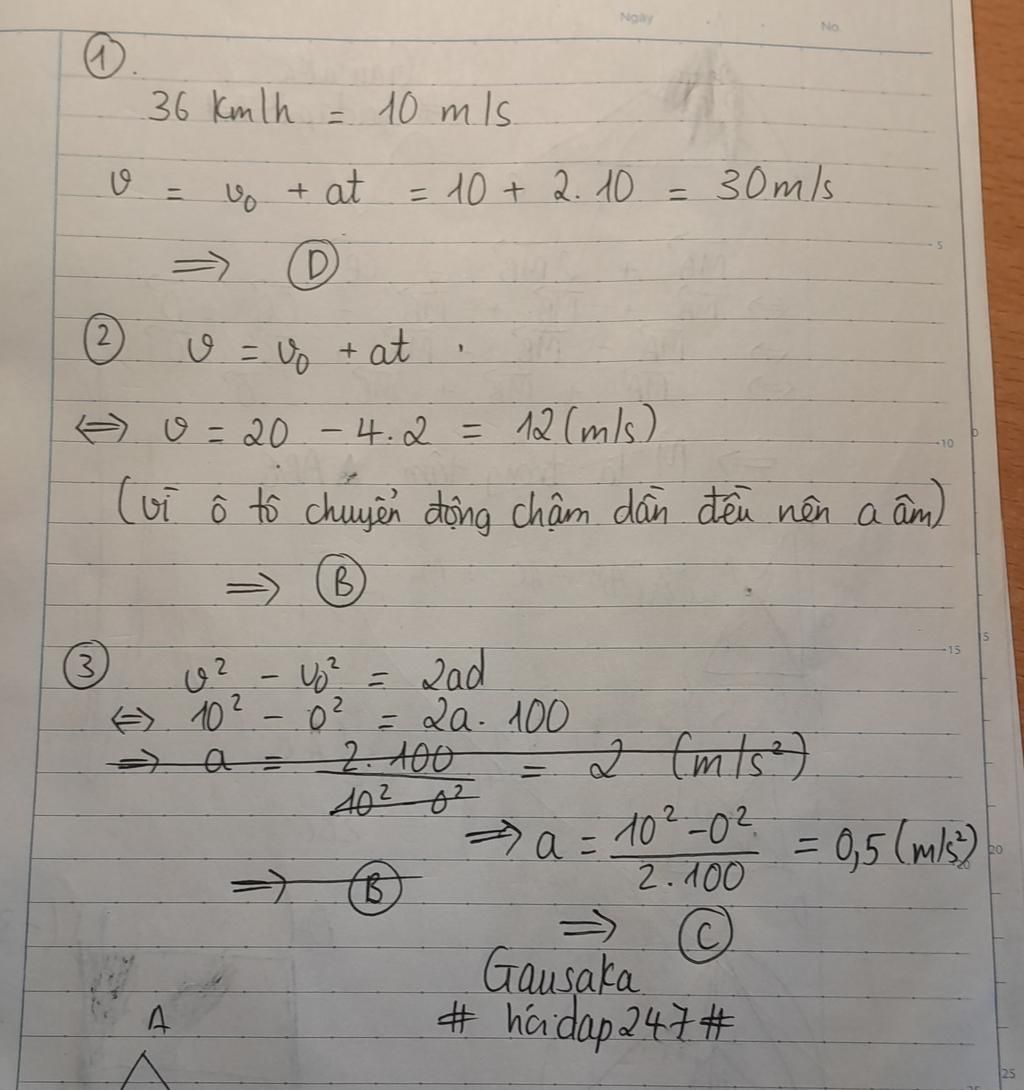 Ngày No.
①.
36 Km/h = 10 m/s
v = v₀ + at = 10 + 2.10 = 30m/s
⇒ Ⓓ
② v = v₀ + at .
⇔ v = 20 - 4.2 = 12 (m/s)
(vì ô tô chuyển động chậm dần đều nên a âm)
⇒ Ⓑ
③ v² - v₀² = 2ad
⇔ 10² - 0² = 2a. 100
⇒ a = 2.100 / 10² - 0² = 2 (m/s²)
⇒ a = 10² - 0² / 2.100 = 0,5 (m/s²)
⇒ Ⓑ
⇒ Ⓒ
Gausaka
# hỏidap247#
A
5
10
15
20
25